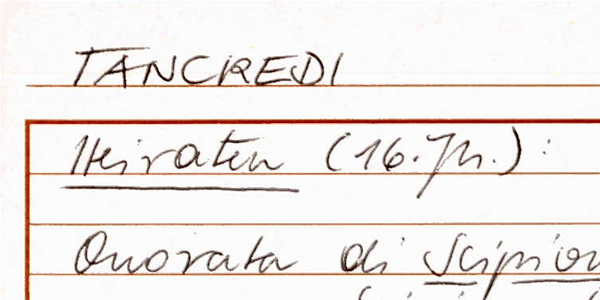 TANCREDI
Heiraten (16. Jh.):
Onorata di Scipion